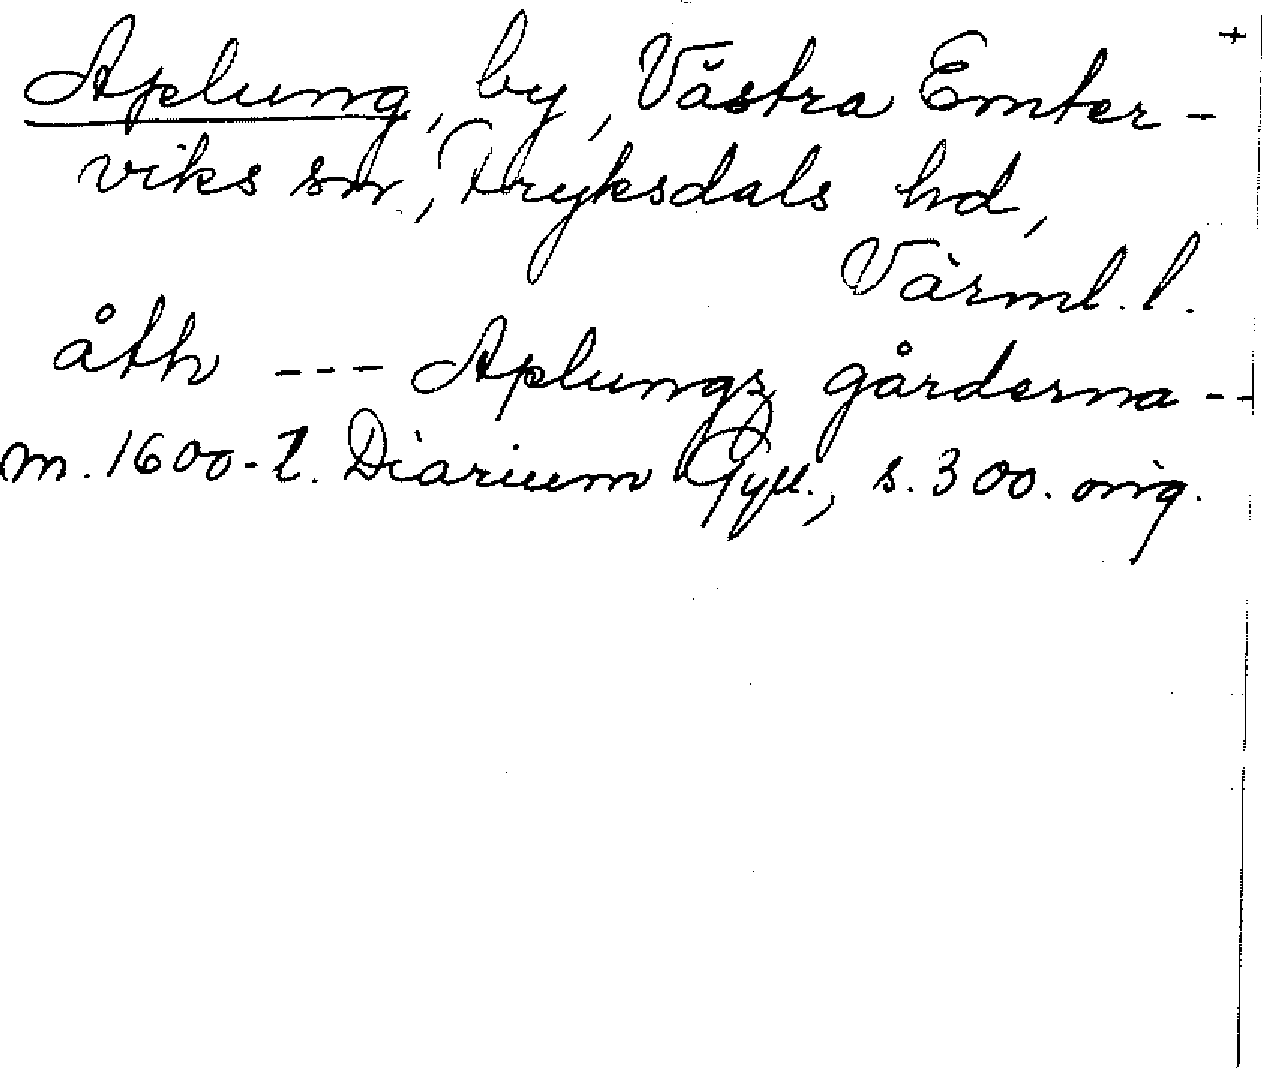 +
Aplung, by, Västra Emter-
viks sn, Fryksdals hd,
Värml. l.
åth --- Aplungz gårderna --
m. 1600-t. Diarium Gyll., s. 300. orig.